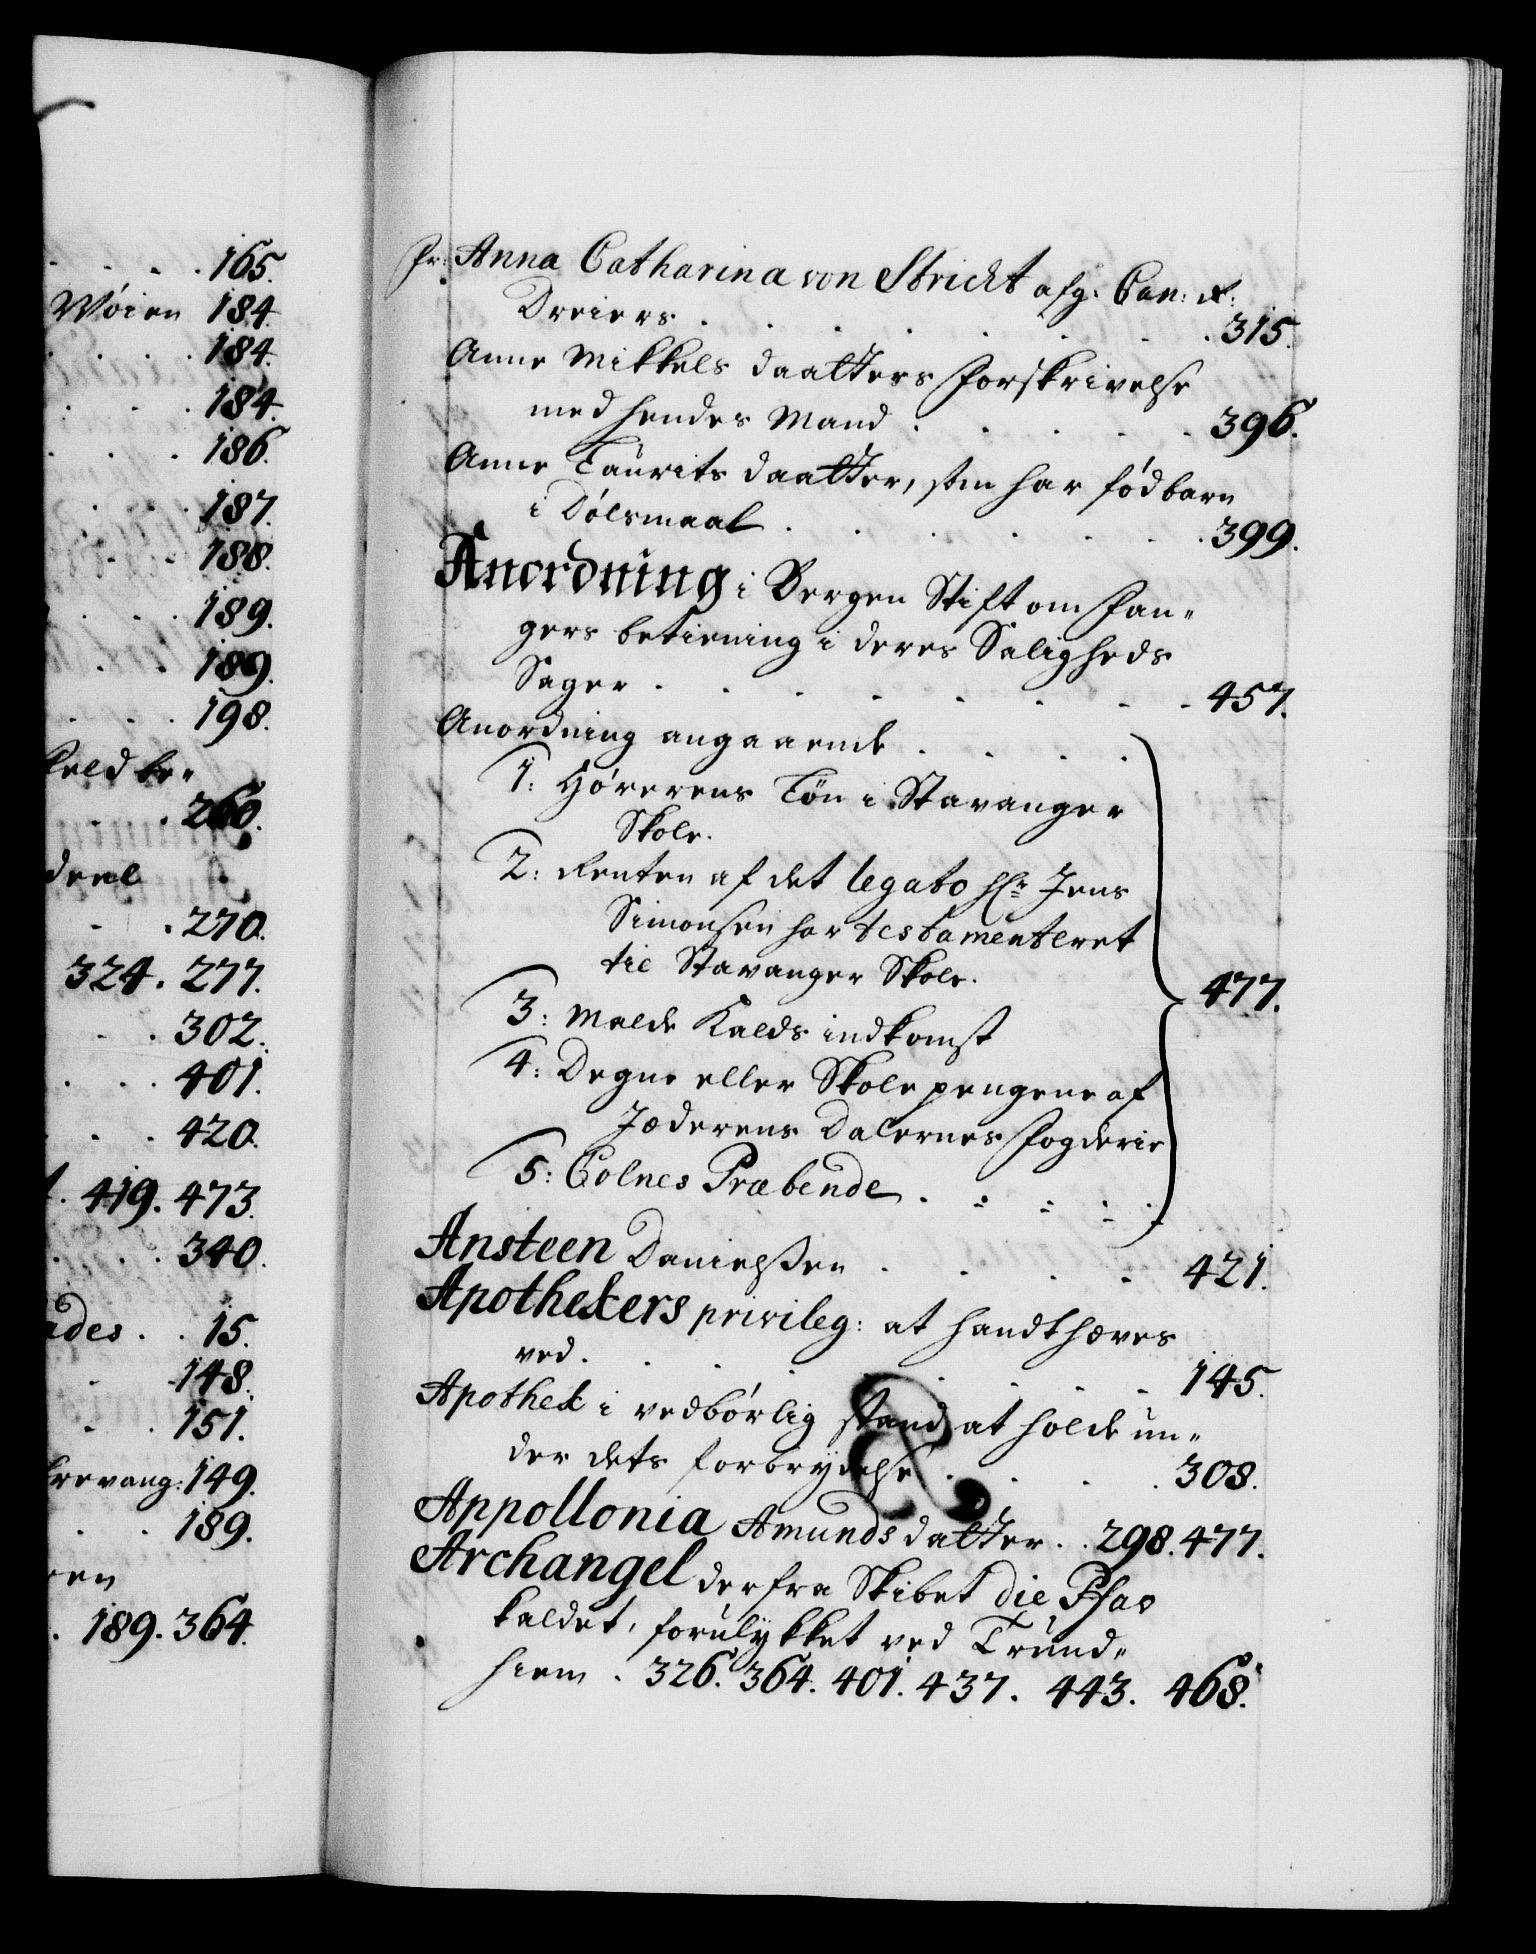 165.
Wöien 184.
184.
184.
186.
187.
188.
189.
189.
198.
Keld be„
260.
deel
270.
324. 277.
302.
401.
420.
419. 473.
340.
ades . . 15.
148.
151.
trevang: 149.
189.
189. 364.
Fr: Anna Catharina von Stricht afg. Can: R:
Dreiers . . . . . . . 315.
Anne Mikkels daatters forskrivelse
med hendes Mand . . . . . 396.
Anne Laurits daatter, som har födbarn
i Dölsmaal . . . . . . 399.
Anordning i Bergen Stift om Fan„
gers betiening i deres Saligheds
Sager . . . . . . . . 457.
Anordning angaaende . . . .
1: Hörerens Lön i Stavanger
Skole.
2: Renten af det legato Hr Jens
Simonsen har testamenteret
til Stavanger Skole.
3: Malde Kalds indkomst
4: Degne eller Skole pengene af
Jæderens Dalernes fogderie
5: Tolnes Præbende . . . .
477.
Ansteen Danielssen . . . . 421.
Apothekers privileg: at handthæves
ved . . . . . . . . 145.
Apothek i vedbörlig stand at holde un„
der dets forbrydelse . . . . 308.
Appollonia Amunds datter . . 298. 477.
Archangel derfra Skibet die Pfau
kaldet, forulykket ved Trund„
hiem . 326. 364. 401. 437. 443. 468.